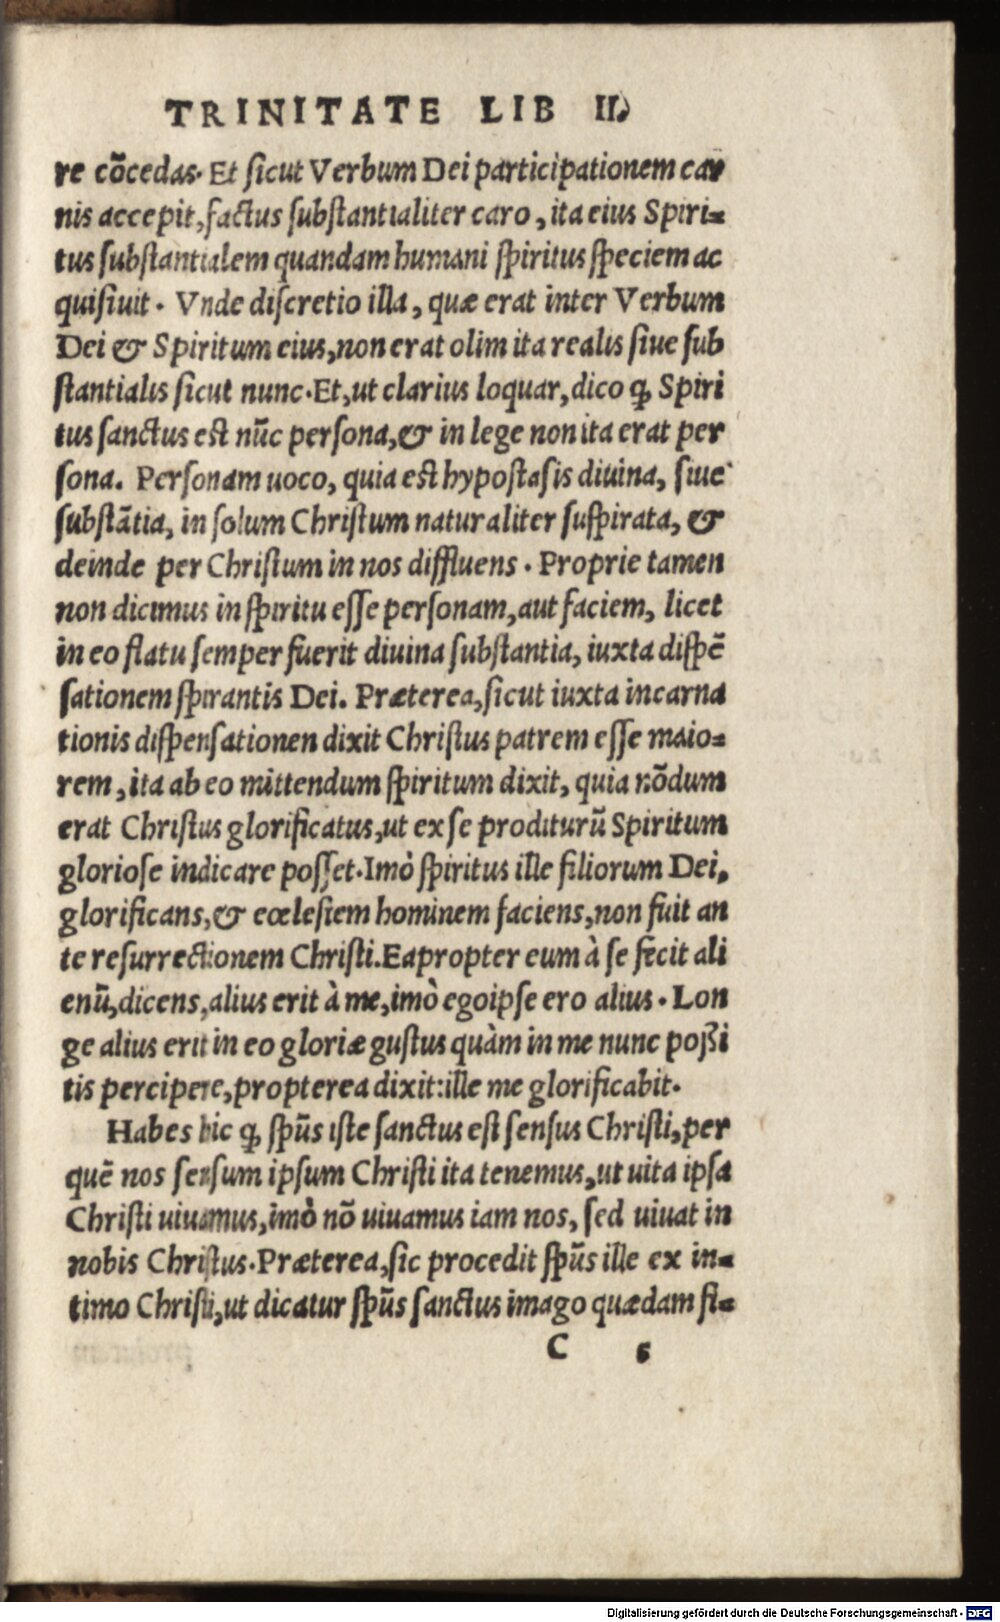 TRINITATE LIB II.
re cōcedas. Et ſicut Verbum Dei participationem car
nis accepit, factus ſubſtantialiter caro, ita eius Spiri-
tus ſubſtantialem quandam humani ſpiritus ſpeciem ac
quiſiuit. Vnde diſcretio illa, quæ erat inter Verbum
Dei & Spiritum eius, non erat olim ita realis ſiue ſub
ſtantialis ſicut nunc. Et, ut clarius loquar, dico ꝙ Spiri
tus ſanctus eſt nūc perſona, & in lege non ita erat per
ſona. Perſonam uoco, quia eſt hypoſtaſis diuina, ſiue
ſubſtātia, in ſolum Chriſtum naturaliter ſuſpirata, &
deinde per Chriſtum in nos diffluens. Proprie tamen
non dicimus in ſpiritu eſſe perſonam, aut faciem, licet
in eo flatu ſemper fuerit diuina ſubſtantia, iuxta diſpē
ſationem ſpirantis Dei. Præterea, ſicut iuxta incarna
tionis diſpenſationen dixit Chriſtus patrem eſſe maio-
rem, ita ab eo mittendum ſpiritum dixit, quia nōdum
erat Chriſtus glorificatus, ut ex ſe proditurū Spiritum
glorioſe indicare poſſet. Imò ſpiritus ille filiorum Dei,
glorificans, & cœleſtem hominem faciens, non fuit an
te reſurrectionem Chriſti. Eapropter eum à ſe fecit ali
enū, dicens, alius erit à me, imò ego ipſe ero alius. Lon
ge alius erit in eo gloriæ guſtus quàm in me nunc poßi
tis percipere, propterea dixit: ille me glorificabit.
Habes hic ꝙ ſpūs iſte ſanctus eſt ſenſus Chriſti, per
quē nos ſenſum ipſum Chriſti ita tenemus, ut uita ipſa
Chriſti uiuamus, imò nō uiuamus iam nos, ſed uiuat in
nobis Chriſtus. Præterea, ſic procedit ſpūs ille ex in-
timo Chriſti, ut dicatur ſpūs ſanctus imago quædam fi-
C 5
Digitalisierung gefördert durch die Deutsche Forschungsgemeinschaft - DFG